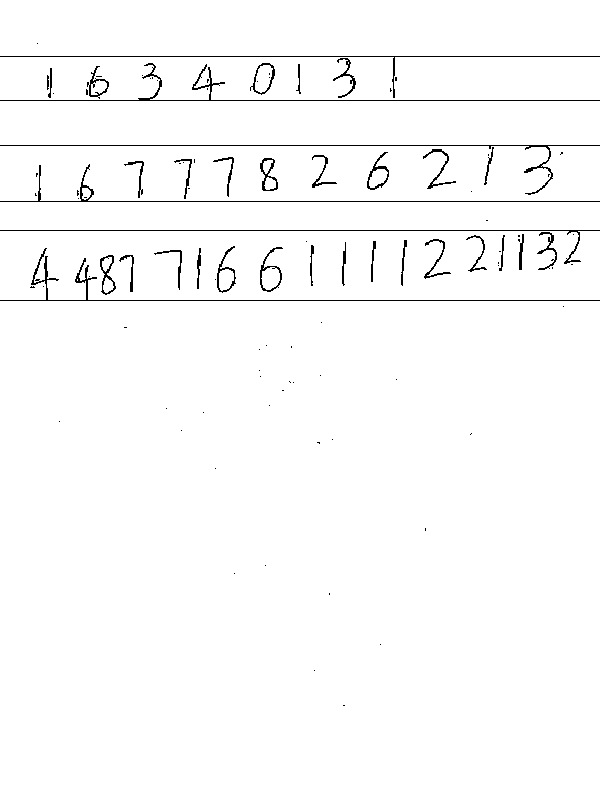 1 6 3 4 0 1 3 1
1 6 7 7 7 8 2 6 2 1 3
4 4877166 1 1 1 1 2 21132